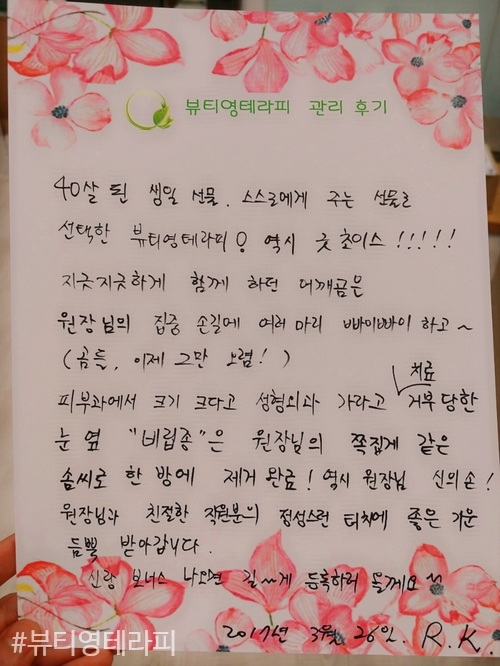 뷰티영테라피 관리 후기
40살 된 생일 선물. 스스로에게 주는 선물로
선택한 뷰티영테라피! 역시 굿 초이스 !!!!!
지긋지긋하게 함께 하던 어깨곰은
원장님의 집중 손길에 여러 마리 빠이빠이 하고~
(곰들, 이제 그만 오렴!)
피부과에서 크기 크다고 성형외과 가라고 치료 거부 당한
눈 옆 "비립종"은 원장님의 쪽집게 같은
솜씨로 한 방에 제거 완료! 역시 원장님 신의 손!
원장님과 친절한 직원분의 정성스런 터치에 좋은 기운
듬뿍 받아갑니다.
신랑 보너스 나오면 길~게 등록하러 올게요~
2017년 3월 26일. R.K.
#뷰티영테라피